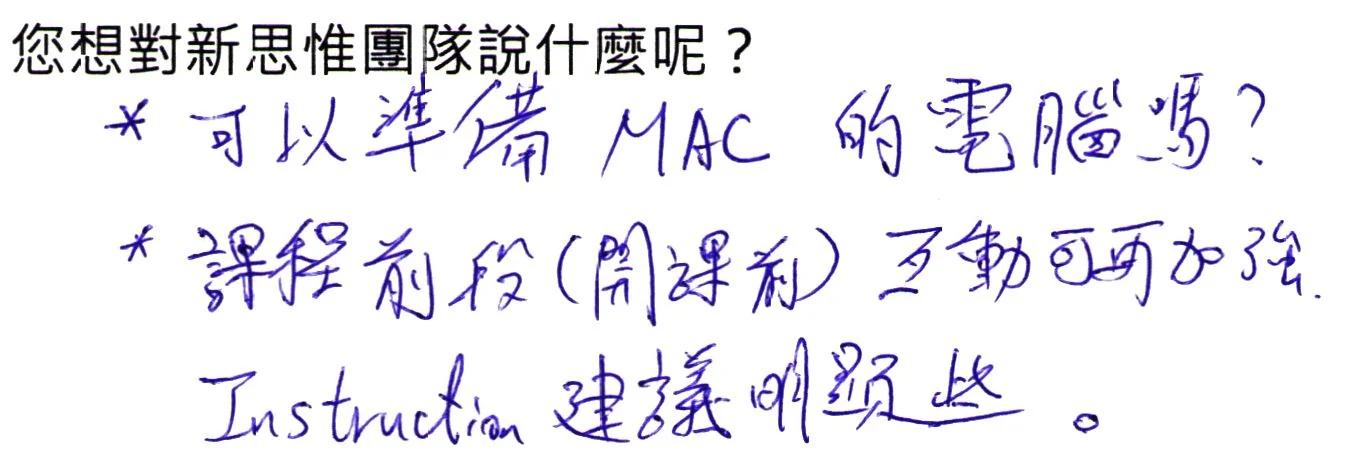 您想對新思惟團隊說什麼呢？
* 可以準備 MAC 的電腦嗎?
* 課程前段(開課前) 互動可再加強.
Instruction 建議明顯些。